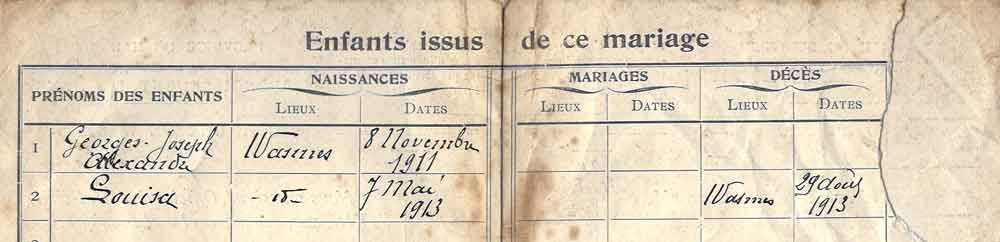 Enfants issus de ce mariage
NAISSANCES MARIAGES DÉCÈS
PRÉNOMS DES ENFANTS
LIEUX DATES LIEUX DATES LIEUX DATES
1 Georges-Joseph Wasmes 8 Novembre
Alexandre 1911
2 Louisa -id- 7 Mai Wasmes 29 août
1913 1913